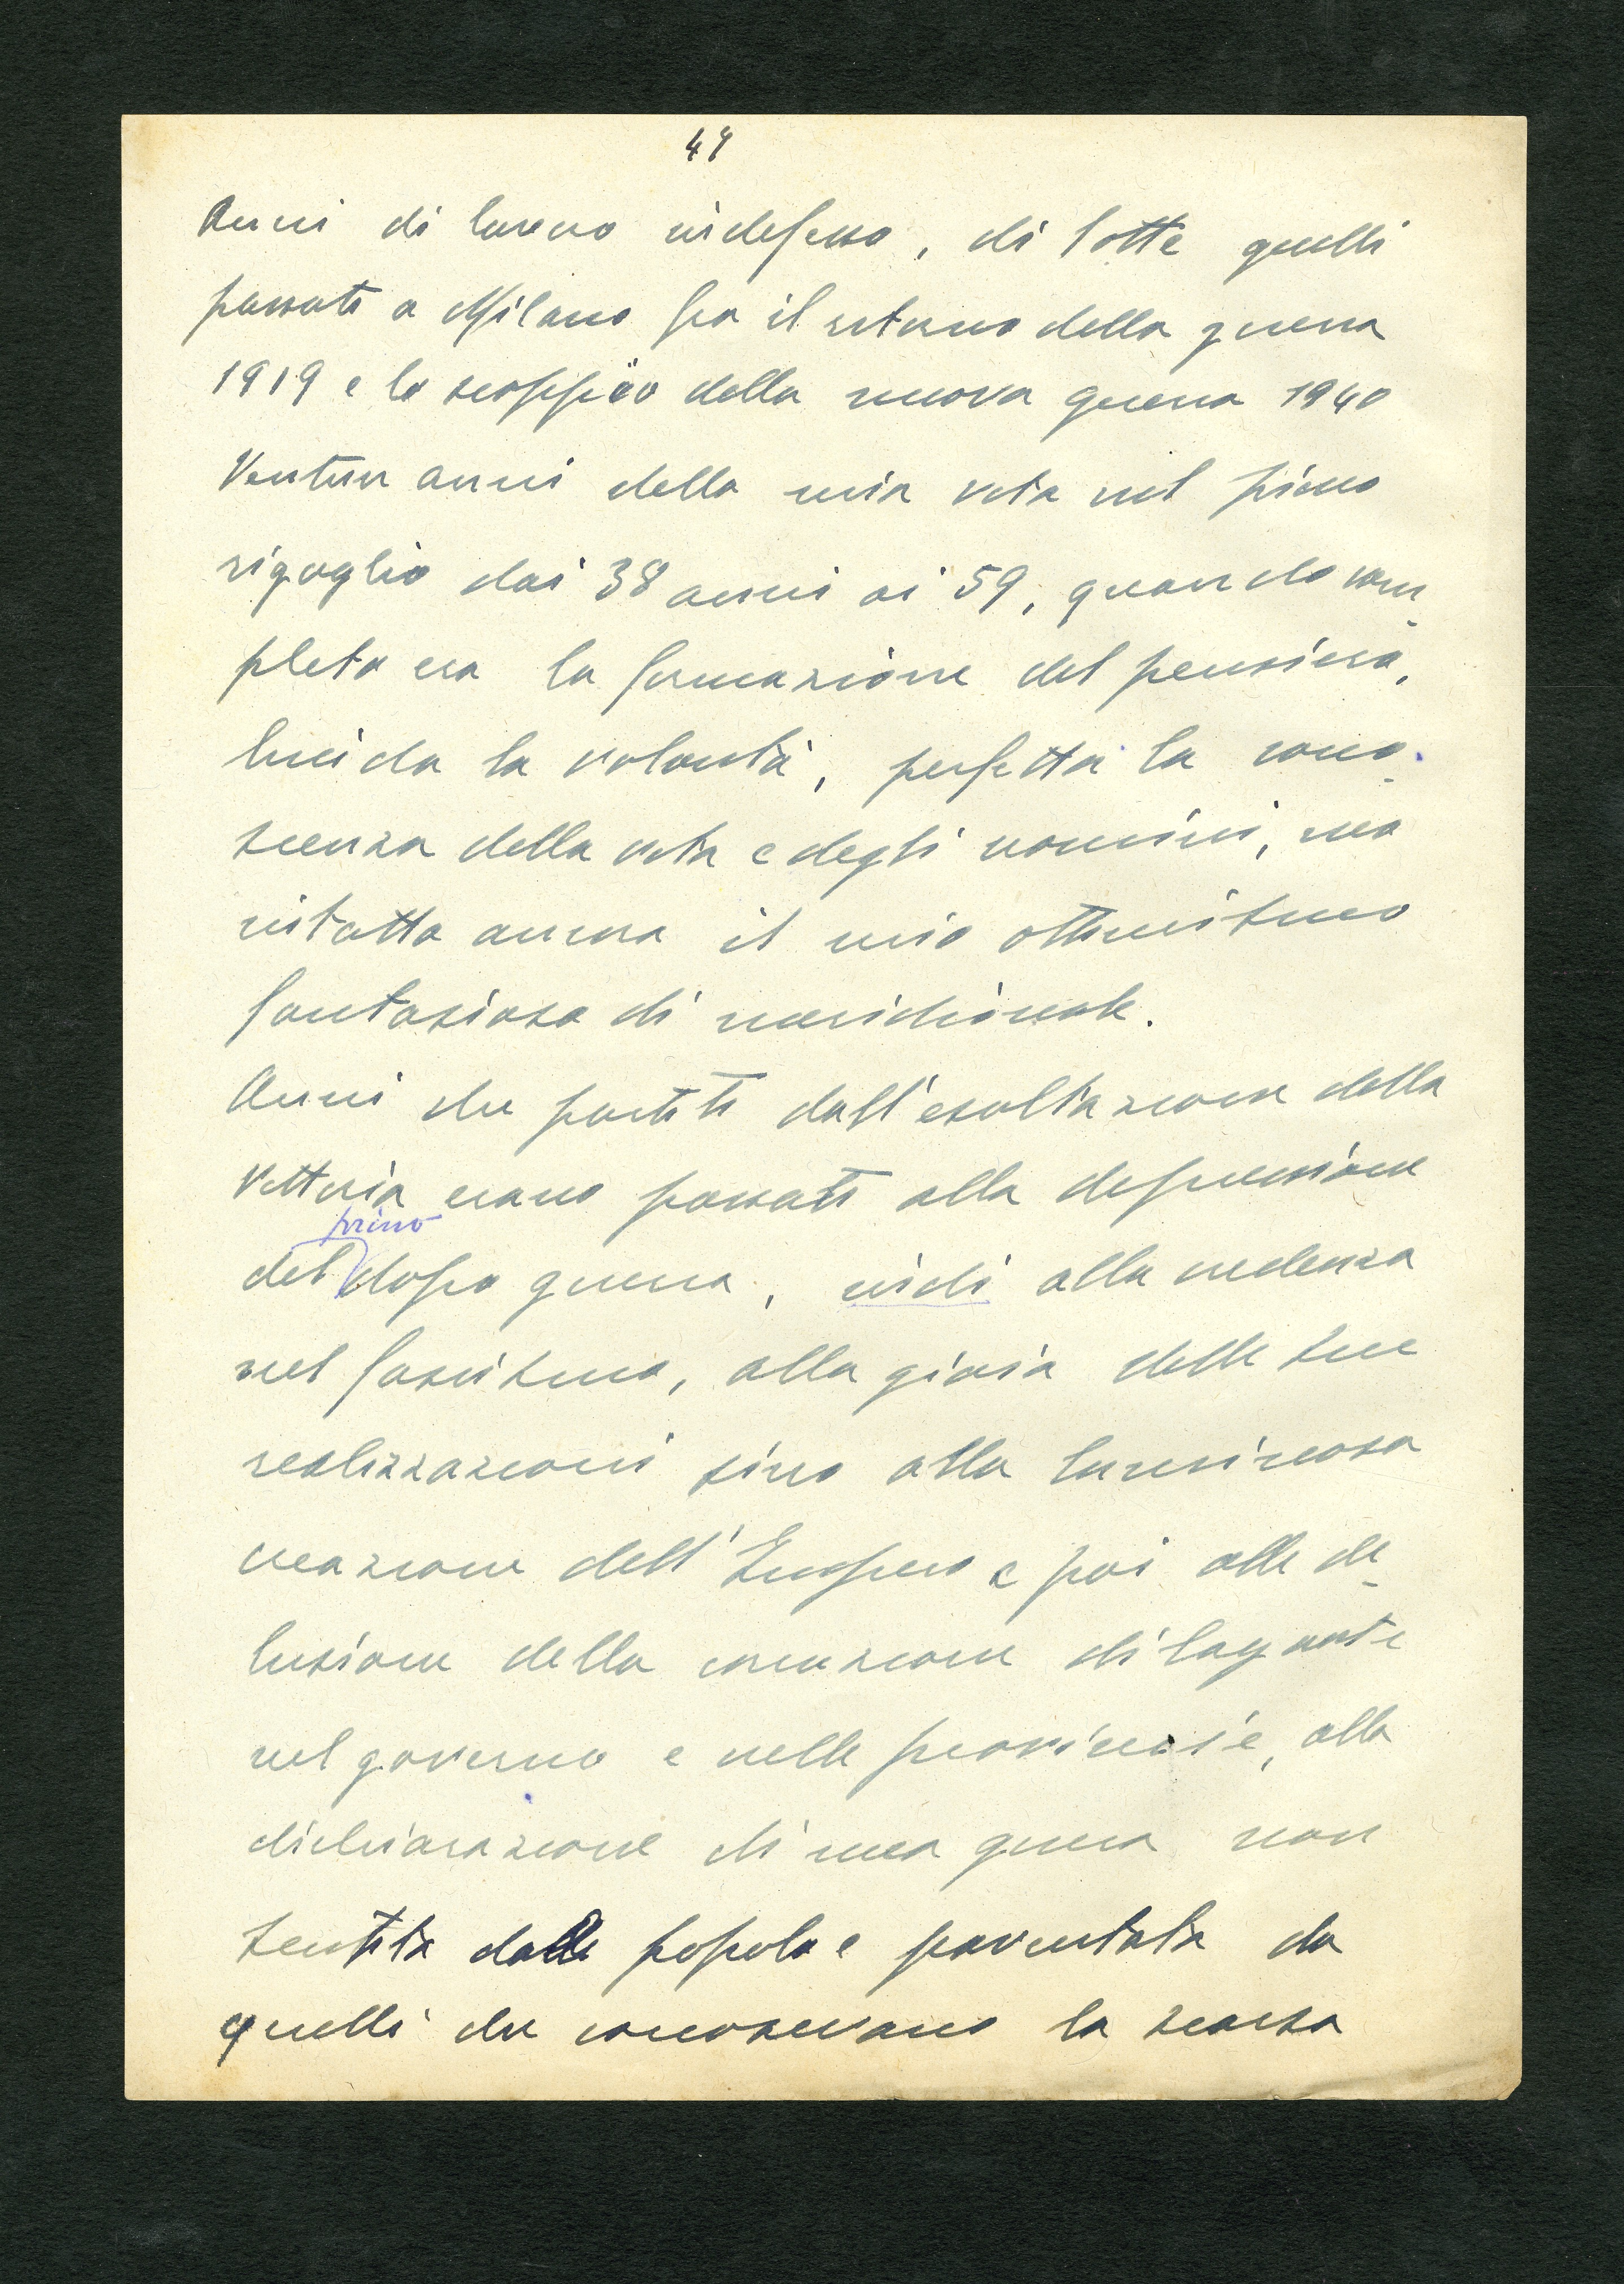 49
Anni di lavoro indefesso, di lotte quelli
passati a Milano fra il ritorno della guerra
1919 e lo scoppio della nuova guerra 1940
Ventun anni della mia vita nel pieno
rigoglio dai 38 anni ai 59, quando com-
pleta era la formazione del pensiero,
lucida la volontà, perfetta la cono-
scenza della vita e degli uomini, ma
intatto ancora il mio ottimismo
fantasioso di meridionale.
Anni che partiti dall'esaltazione della
Vittoria erano passati alla depressione
primo
del dopo guerra, indi alla credenza
nel fascismo, alla gioia delle sue
realizzazioni sino alla luminosa
creazione dell'Impero e poi alle de-
lusione della corruzione dilagante
nel governo e nelle provincie, alla
dichiarazione di una guerra non
sentita dal popolo e paventata da
quelli che conoscevano la scarsa